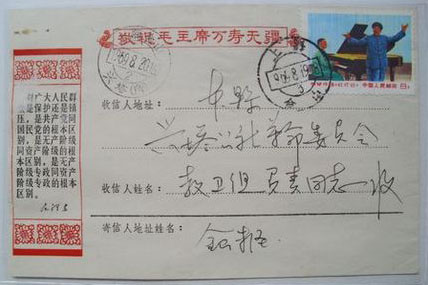 敬祝毛主席万寿无疆
钢琴伴唱《红灯记》 中国人民邮政 8分
对广大人民群
众是保护还是镇
压,是共产党同
国民党的根本区
别,是无产阶级
同资产阶级的根
本区别,是无产
阶级专政同资产
阶级专政的根本
区别。
收信人地址: 本县
公社革命委员会
收信人姓名: 教卫组负责同志收
寄信人地址姓名: